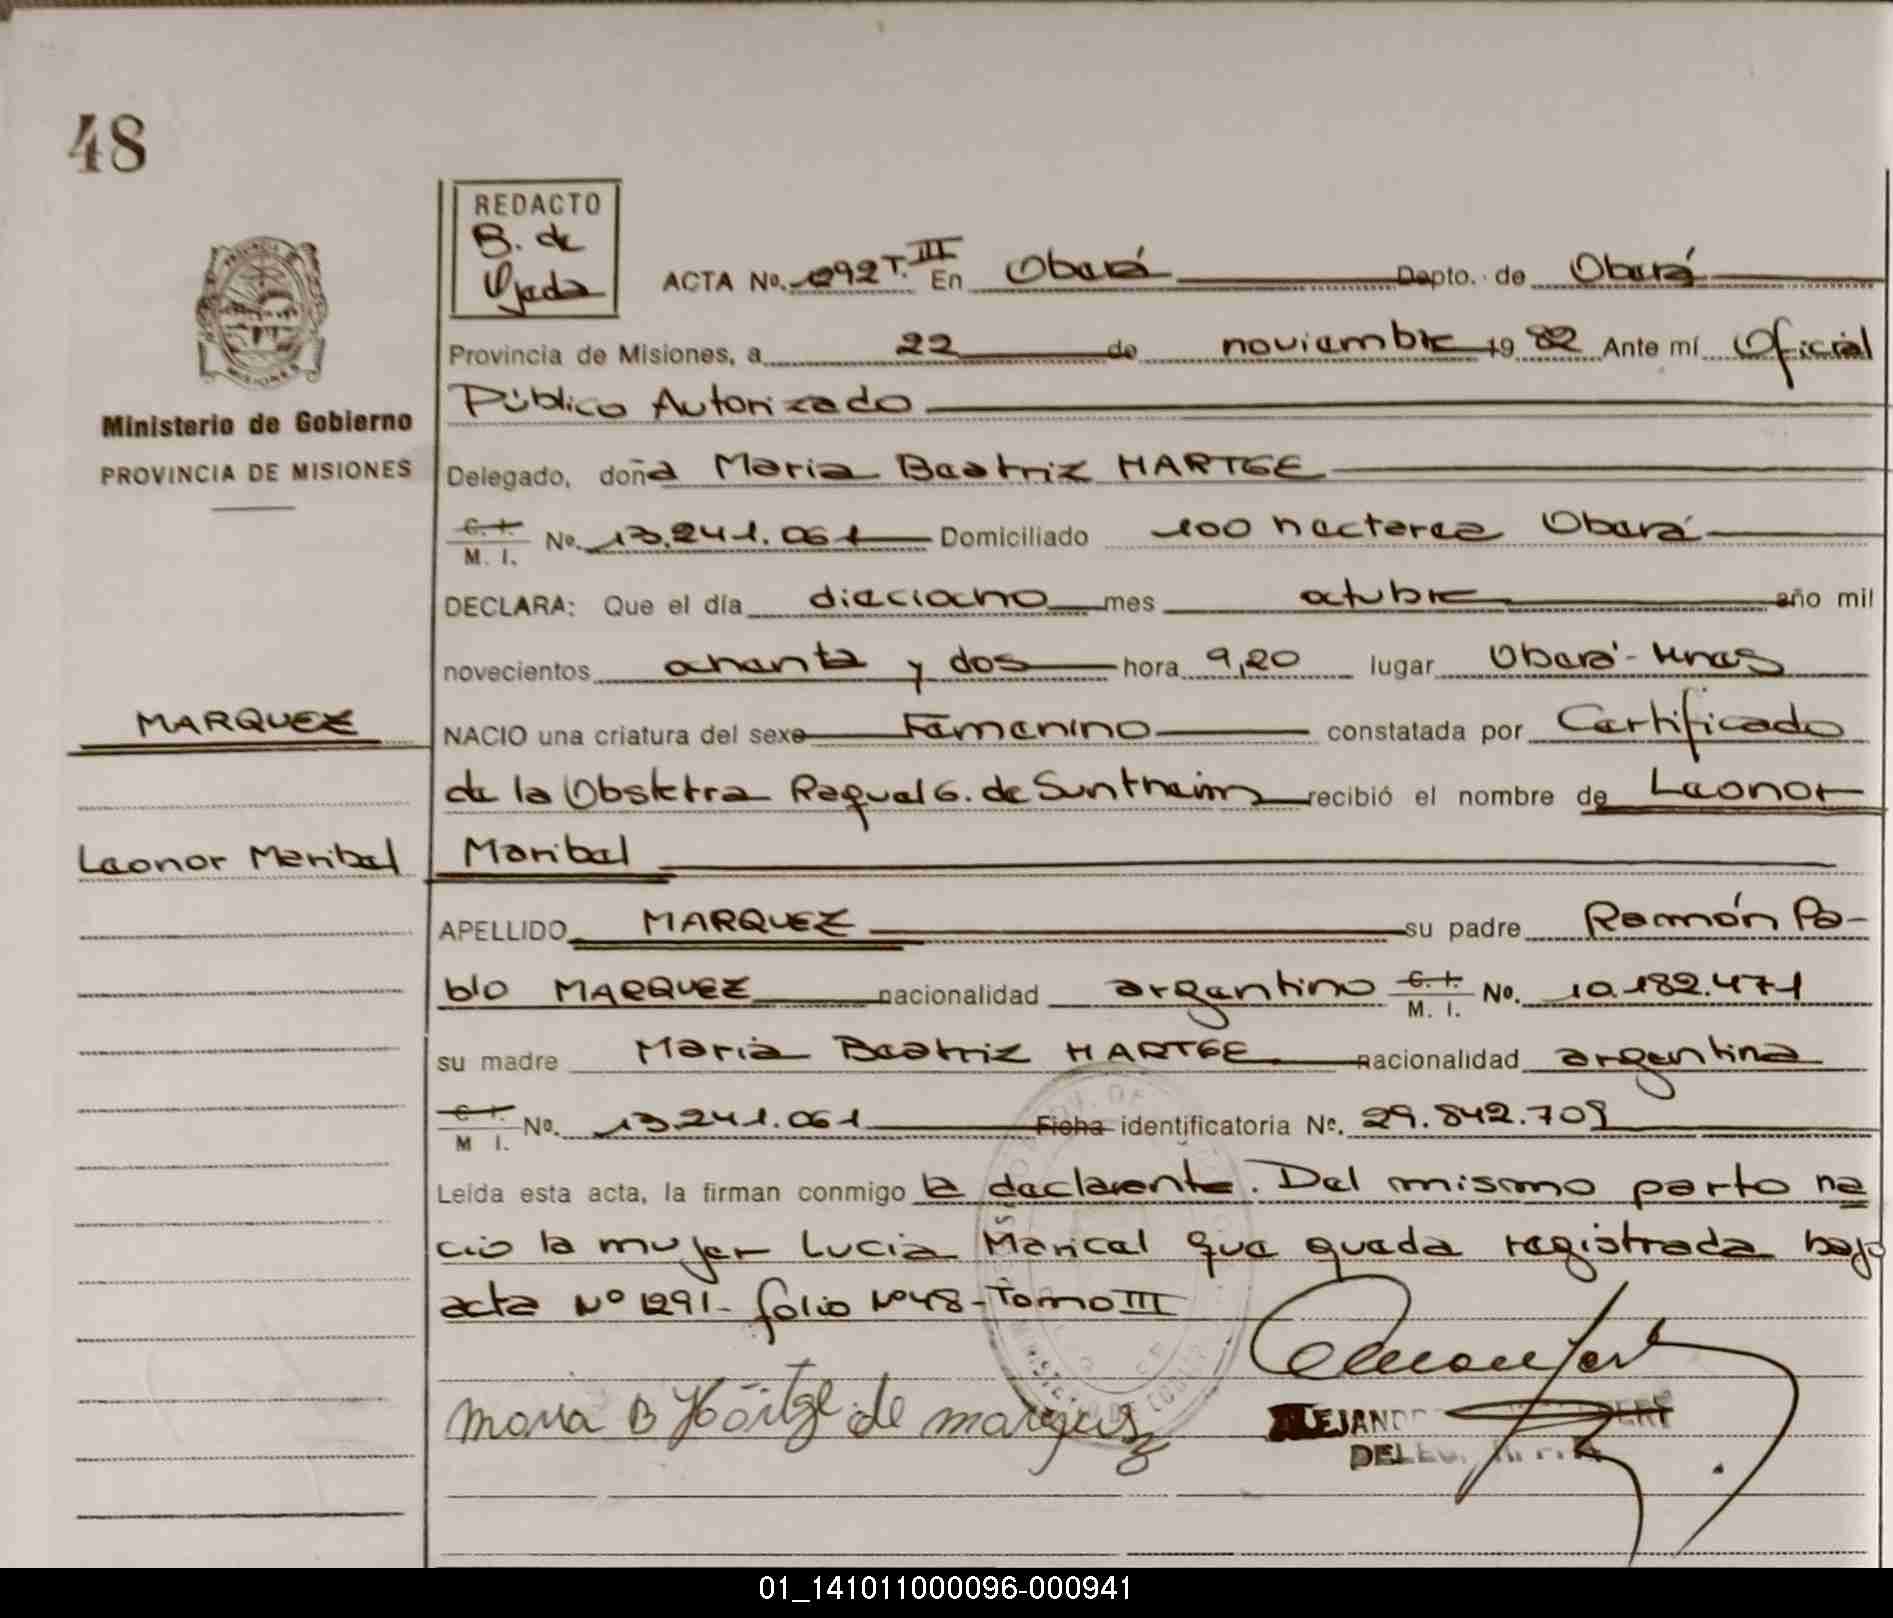 48
REDACTO
B. de
Ojeda
ACTA No. 1292 T. III En Oberá Dapto. de Oberá
Provincia de Misiones, a 22 de noviembre 19 82 Ante mí Oficial
Público Autorizado
Ministerio de Gobierno
PROVINCIA DE MISIONES
Delegado, doña Maria Beatriz HARTGE
C. I. M. I. No. 13.241.061 Domiciliado 100 hectarea Oberá
DECLARA: Que el día dieciocho mes octubre año mil
novecientos ochenta y dos hora 9,20 lugar Oberá-Mnes
MARQUEZ
NACIO una criatura del sexo Femenino constatada por Certificado
de la Obstetra Raquel G. de Suntheim recibió el nombre de Leonor
Leonor Maribel
Maribel
APELLIDO MARQUEZ su padre Ramón Pa-
blo MARQUEZ nacionalidad argentino C. I. M. I. No. 10.182.471
su madre Maria Beatriz HARTGE nacionalidad argentina
C. I. M I. No. 13.241.061 Ficha identificatoria No. 29.842.709
Leída esta acta, la firman conmigo la declarente. Del mismo parto na
ció la mujer Lucia Maricel que queda registrada bajo
acta Nº 1291- folio Nº 48-Tomo III
Maria B Hörtge de Marquez
ALEJAND
DELEG
01_141011000096-000941